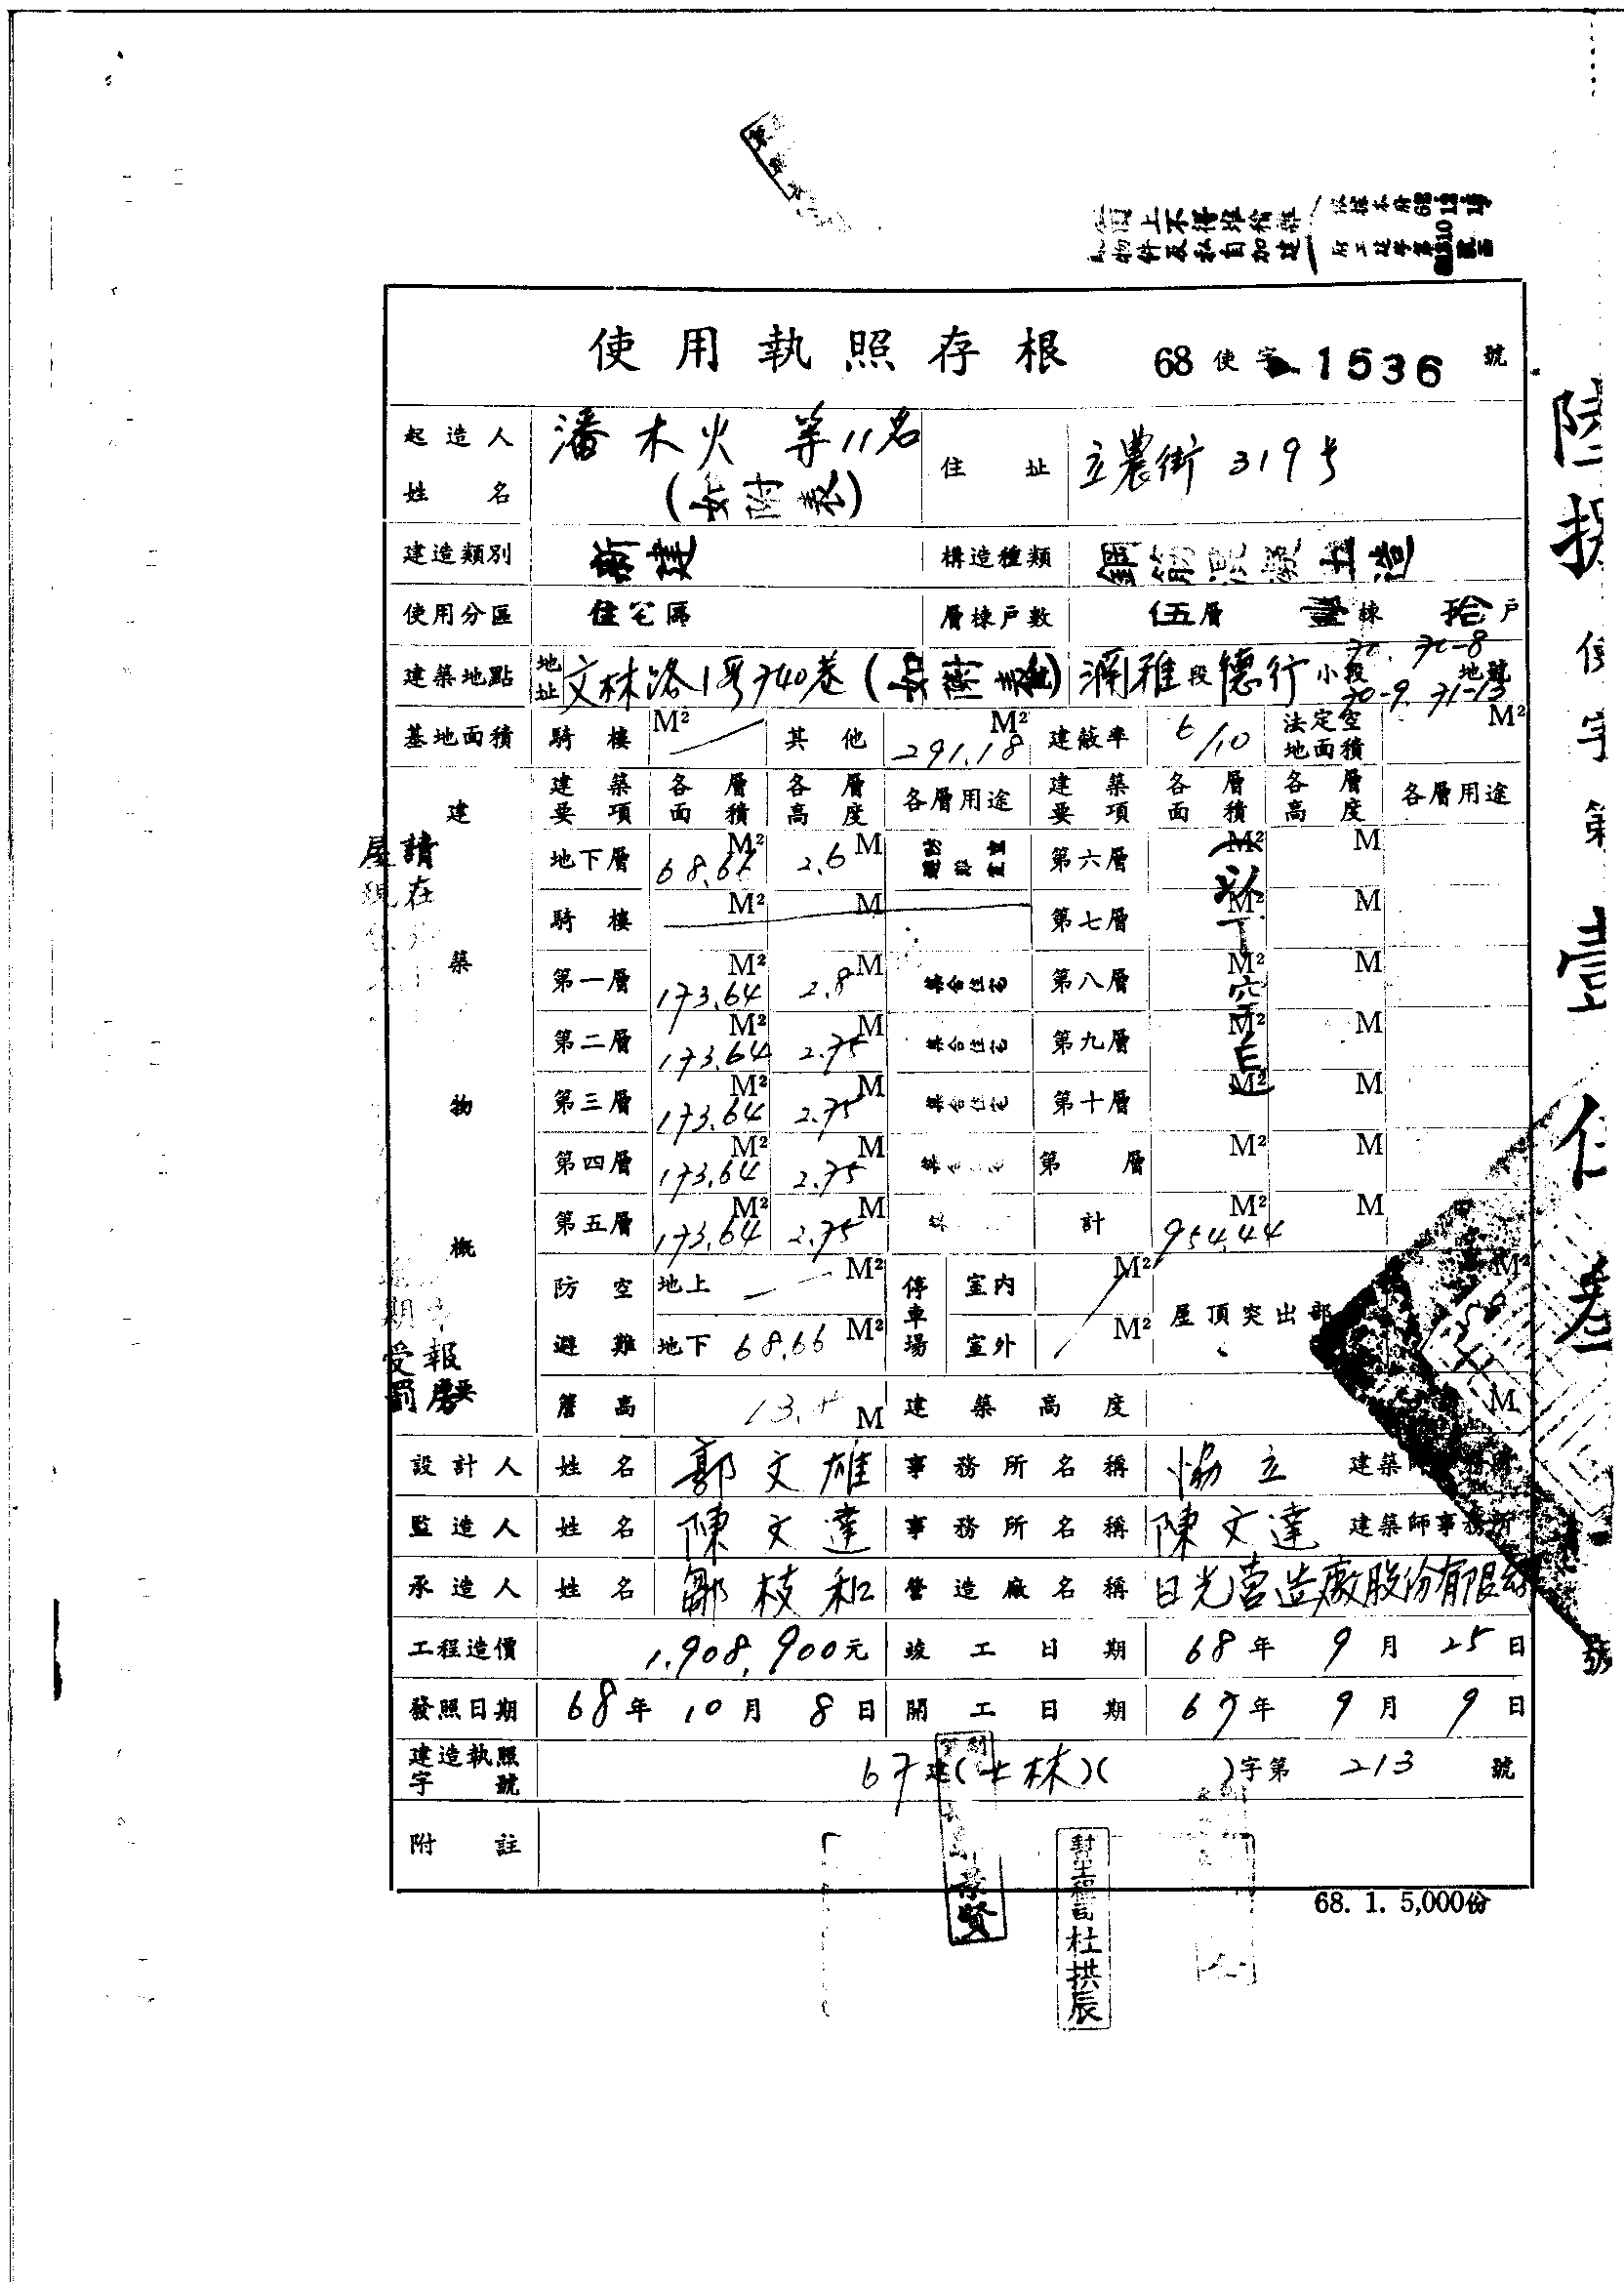 上不得堆積
物件及私自加建
使用執照存根 68 使字 1536 號
起造人姓名 潘木火 等11名 (如附表) 住址 立農街 319号
建造類別 新建 構造種類 鋼筋混凝土造
使用分區 住宅區 層棟戶數 伍層 壹棟 拾戶
建築地點 地址 文林路 740巷 雅段 德行小段 70. 70-8 70-9. 71-13 地號
基地面積 騎樓 M² 其他 291.18 M² 建蔽率 6/10 法定空地面積 M²
建築物概要 建築要項 各層面積 各層高度 各層用途 建築要項 各層面積 各層高度 各層用途
地下層 68.66 M² 2.6 M 第六層 M² M
騎樓 M² M 第七層 M² M
第一層 173.64 M² 2.8 M 第八層 M² M
第二層 173.64 M² 2.75 M 第九層 M² M
第三層 173.64 M² 2.75 M 第十層 M² M
第四層 173.64 M² 2.75 M 第 層 M² M
第五層 173.64 M² 2.75 M 計 954.44 M² M
(以下空白)
防空避難 地上 M² 停車場 室內 M² 屋頂突出部 M²
地下 68.66 M² 室外 M²
簷高 M 建築高度 M
設計人 姓名 郭文雄 事務所名稱 協立 建築師
監造人 姓名 陳文達 事務所名稱 陳文達 建築師事務所
承造人 姓名 鄒枝和 營造廠名稱 日光營造廠股份有限
工程造價 1,908,900元 竣工日期 68年 9月 25日
發照日期 68年 10月 8日 開工日期 67年 9月 9日
建造執照字號 67建(士林)( )字第 213 號
附註
68. 1. 5,000份
杜拱辰
使字第壹
號